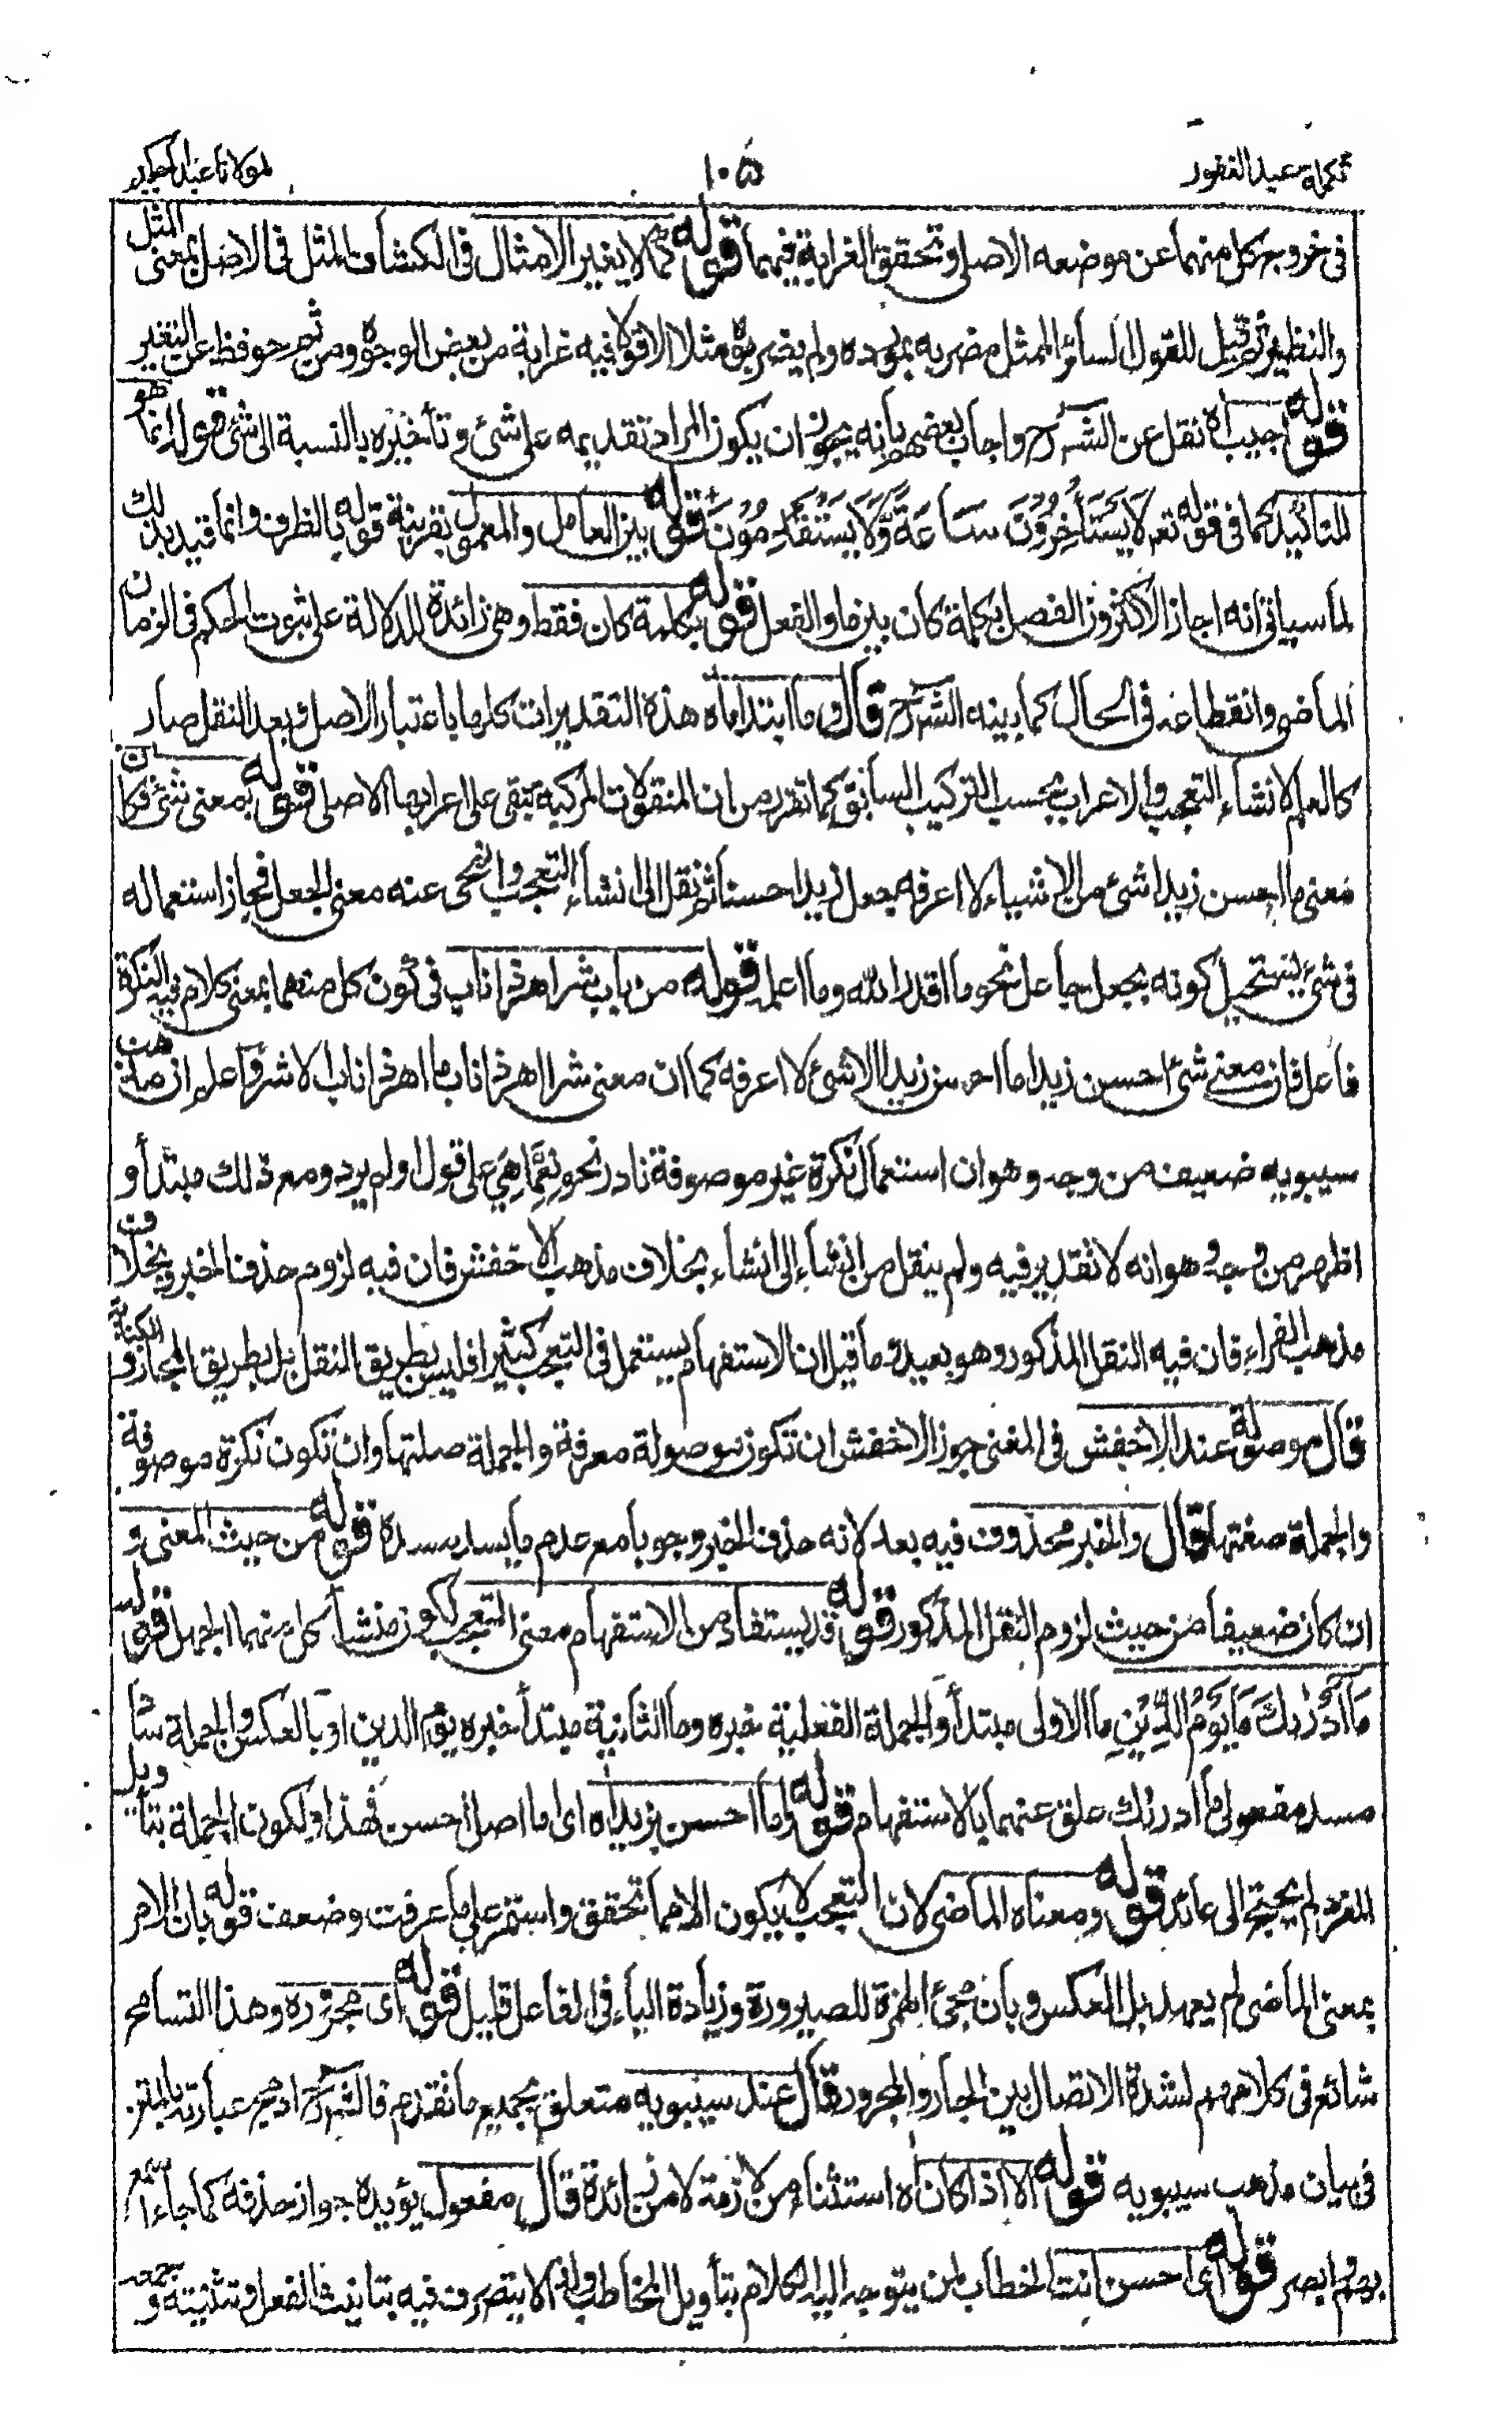 تكمله عبد الغفور
١٠٥
لمولانا عبد الحكيم
فى خروج كل منهما عن موضعه الاصلى وتحقق الغرابة فيهما قوله كما لا يغير الامثال فى الكشاف المثل فى الاصل بمعنى المثل
والنظير ثم قيل للقول السائر الممثل مضربه بمورده ولم يضربوه مثلا الا قولا فيه غرابة من بعض الوجوه ومن ثم حوفظ عن التغير
قوله اجيب اه نقل عن الشرح واجاب بعضهم بانه يجوز ان يكون المراد تقديمه على شئ وتأخيره بالنسبة الى شئ قوله انما هو
للتاكيد كما فى قوله تعم لَا يَسْتَأْخِرُوْنَ سَاعَةً وَّلَا يَسْتَقْدِمُوْنَ قوله بين العامل والمعمول بقرينة قوله بالظرف وانما قيد بذلك
لما سيأتى انه اجاز الاكثرون الفصل بكلمة كان بين ما والفعل قوله بكلمة كان فقط وهى زائدة للدلالة على ثبوت الحكم فى الزمان
الماضى وانقطاعه فى الحال كما بينه الشرح قال وما ابتدا ماه هذه التقديرات كلها باعتبار الاصل وبعد النقل صار
كالعلم لانشاء التعجب والاعراب بحسب التركيب السابق كما تقرر من ان المنقولات المركبة تبقى على اعرابها الاصلى قوله بمعنى شئ فكان
معنى ما احسن زيدا شئ من الاشياء لا اعرفه جعل زيدا حسنا ثم نقل الى انشاء التعجب وانمحى عنه معنى الجعل فجاز استعماله
فى شئ يستحيل كونه بجعل جاعل نحو ما اقدر الله وما اعلم قوله من باب شر اهر ذا ناب فى كون كل منهما بمعنى كلام فيه النكرة
فاعل فان معنى شئ احسن زيدا ما احسن زيدا الا شئ لا اعرفه كما ان معنى شر اهر ذا ناب ما اهر ذا ناب الا شر واعلم ان مذهب
سيبويه ضعيف من وجه وهو ان استعمال نكرة غير موصوفة نادر نحو نِعِمَّا هِيَ على قول ولم يرد ومع ذلك مبتدأ و
اظهر من وجه وهو انه لا تقدير فيه ولم ينقل من انشاء الى انشاء بخلاف مذهب الاخفش فان فيه لزوم حذف الخبر وبخلاف
مذهب الفراء فان فيه النقل المذكور وهو بعيد وما قيل ان الاستفهام يستعمل فى التعجب كثيرا فليس بطريق النقل بل بطريق المجاز والكناية
قال موصولة عند الاخفش فى المغنى جوز الاخفش ان تكون موصولة معرفة والجملة صلتها وان تكون نكرة موصوفة
والجملة صفتها قال والخبر محذوف فيه بعد لانه حذف الخبر وجوبا مع عدم ما يسد مسده قوله من حيث المعنى و
ان كان ضعيفا من حيث لزوم النقل المذكور قوله قد يستفاد من الاستفهام معنى التعجب لكون منشأ كل منهما الجهل قوله
مَا أَدْرٰىكَ مَا يَوْمُ الدِّيْنِ ما الاولى مبتدأ والجملة الفعلية خبره وما الثانية مبتدأ خبره يوم الدين او بالعكس والجملة ساد
مسد مفعولى ما ادرىك علق عنهما بالاستفهام قوله وما احسن بزيد اه اى ما اصل احسن فهذا ولكون الجملة بتأويل
المفرد لم يحتج الى عائد قوله ومعناه الماضى لان التعجب لا يكون الا مما تحقق واستمر على ما عرفت وضعف قوله بان الامر
بمعنى الماضى لم يعهد بل العكس وبان مجئ الهمزة للصيرورة وزيادة الباء فى الفاعل قليل قوله اى مجروره وهذا التسامح
شائع فى كلامهم لشدة الاتصال بين الجار والمجرور قال عند سيبويه متعلق بجميع ما تقدم فالشرح ادمج عبارته بالمتن
فى بيان مذهب سيبويه قوله الا اذا كان اه استثناء من لازمة لا من زائدة قال مفعول يؤيده جواز حذفه كما جاء اسمع
بهم وابصر قوله اى احسن انت الخطاب لمن يتوجه اليه الكلام بتأويل المخاطب وانما لا يتصرف فيه بتانيث الفعل وتثنيته وجمعه